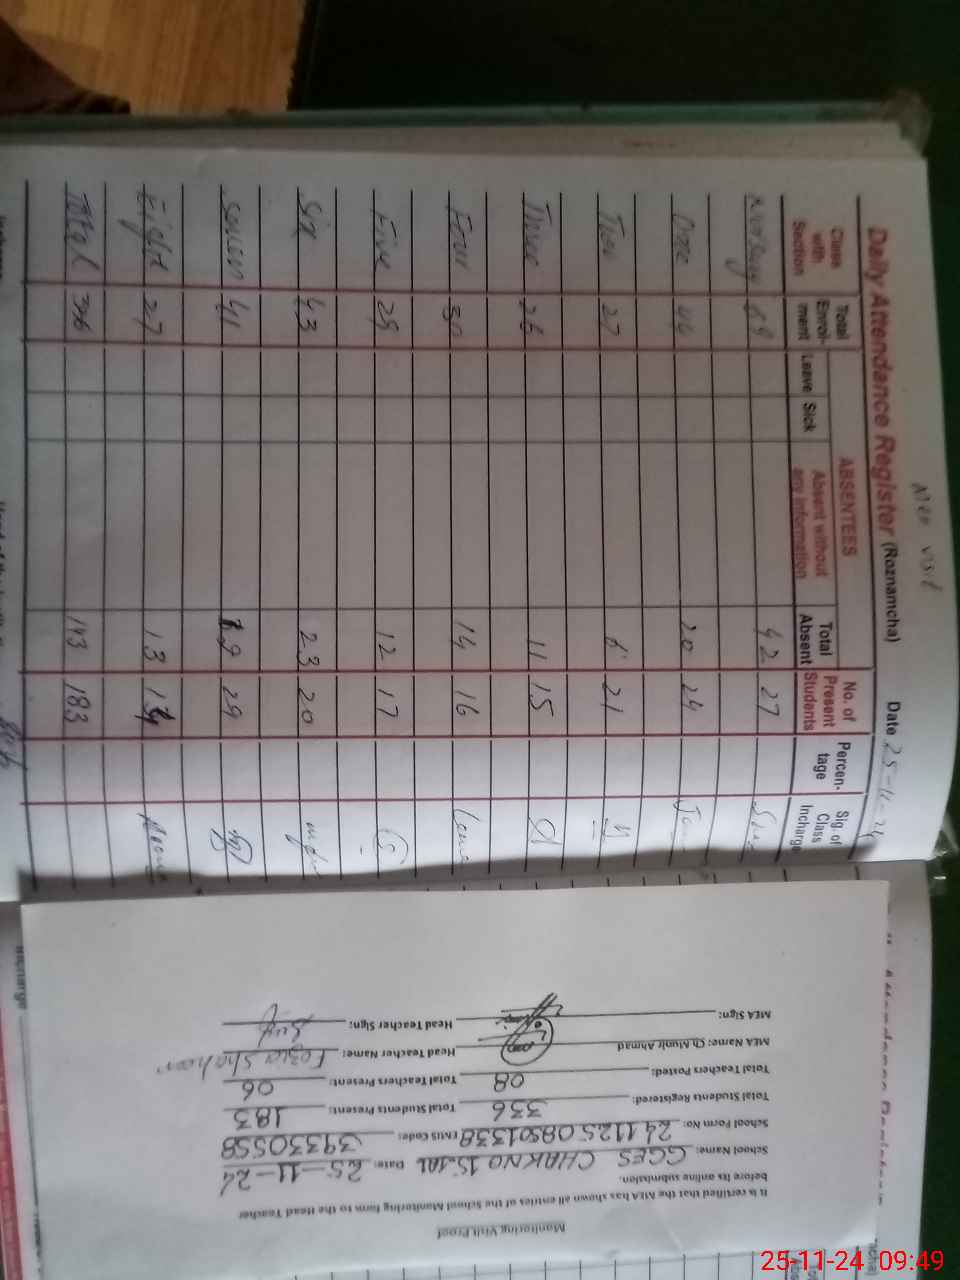 Men visit
Daily Attendance Register (Roznamcha) Date 25-11-24
Class with Section Total Enrol-ment ABSENTEES No. of Present Students Percen-tage Sig. of Class Incharge
Leave Sick Absent without any information Total Absent
69 42 27
One 44 20 24
Two 27 6 21
Three 26 11 15
Four 30 14 16
Five 29 12 17
Six 43 23 20
Seven 41 29
Eight 27 13 14
Total 336 183
Monitoring Visit Proof
It is certified that the MEA has shown all entries of the School Monitoring form to the Head Teacher
before its online submission.
School Name: GGES CHAK NO 15.1AL Date: 25-11-24
School Form No: 24112508S01338 EMIS Code: 39330558
Total Students Registered: 336 Total Students Present: 183
Total Teachers Posted: 08 Total Teachers Present: 06
MEA Name: Ch.Munir Ahmad Head Teacher Name: Fozia Shaheen
MEA Sign: Head Teacher Sign:
Incharge
25-11-24 09:49